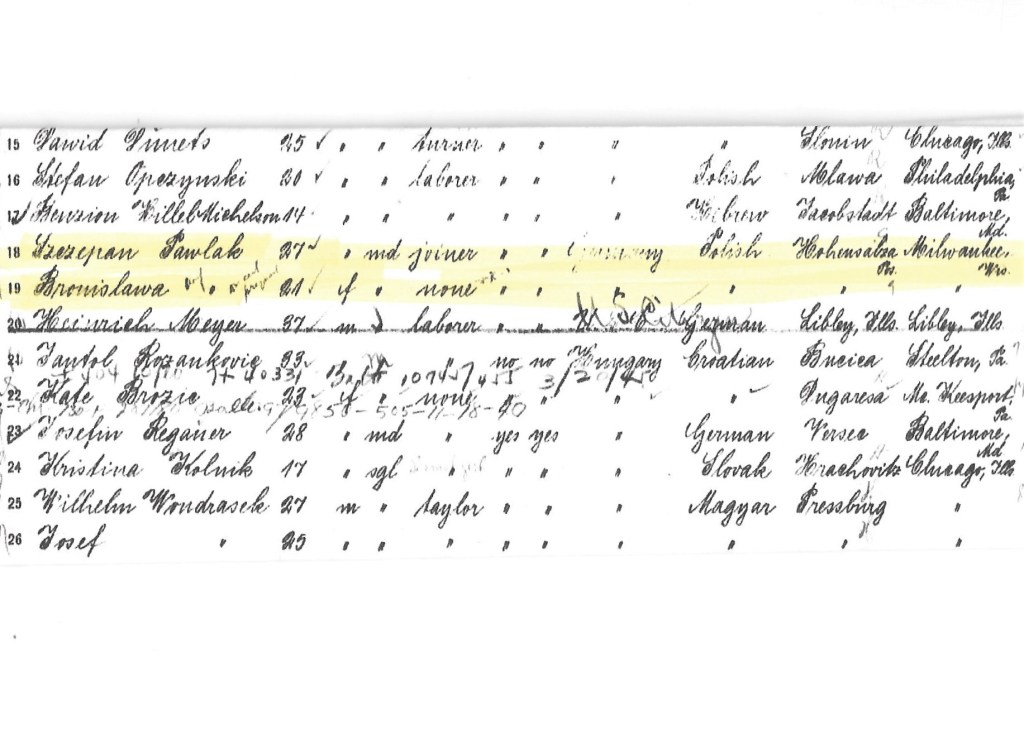 15 Dawid Dimets 25 " " turner " " " " Slonin Chicago, Ills.
16 Stefan Opczynski 20 " " laborer " " " Polish Mlawa Philadelphia, Pa.
17 Benzion Hillel Michelson 14 " " " " " " Hebrew Jacobstadt Baltimore, Md.
18 Szczepan Pawlak 27 " md joiner " " Germany Polish Hohensalza Milwaukee, Wis.
19 Bronislawa " 21 f " none " " " " " "
20 Heinrich Meyer 37 m " laborer " " U.S. Citizen German Libby, Ills. Libby, Ills
21 Rozankovic 33 " " " no no Hungary Croatian Steelton, Pa.
3/20/45
22 Kate Brozic 23 f " none " " " " Dugaresa Mc. Keesport, Pa.
23 Josefin Reganer 28 " md " yes yes " German Versec Baltimore, Md
24 Kristina Kolnik 17 " sgl " " " " Slovak Hrachovitz Chicago, Ills
25 Wilhelm Wondrasek 27 m " taylor " " " Magyar Pressburg "
26 Josef " 25 " " " " " " " " "